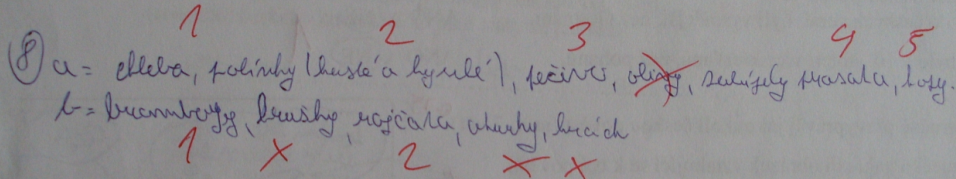 1 2 3 4 5
8 a = chleba, polívky (husté a kyselé), pečivo, olivy, zabíjely prasata, kozy.
b = brambory, hrušky, rajčata, okurky, hrách
1 x 2 x x